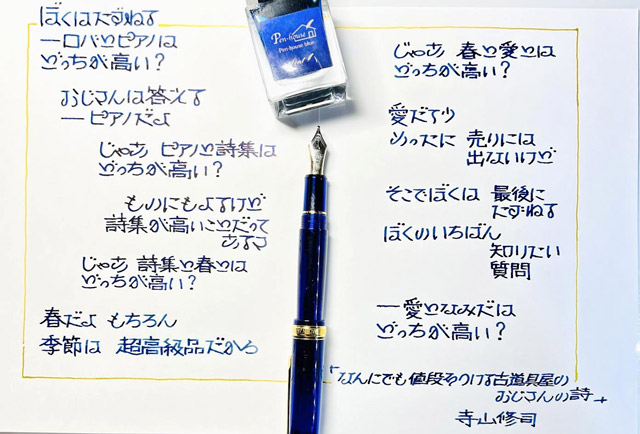 ぼくはたずねる
一ロバとピアノは
どっちが高い?
おじさんは答える
一ピアノだよ
じゃあ ピアノと詩集は
どっちが高い?
ものにもよるけど
詩集が高いことだって
あるさ
じゃあ 詩集と春とは
どっちが高い?
春だよ もちろん
季節は 超高級品だから
Pen-house
Pen-house blue
じゃあ 春と愛とは
どっちが高い?
愛だろう
めったに 売りには
出ないけど
そこでぼくは 最後に
たずねる
ぼくのいちばん
知りたい
質問
一愛となみだは
どっちが高い?
「なんにでも値段をつける古道具屋の
おじさんの詩」
寺山修司